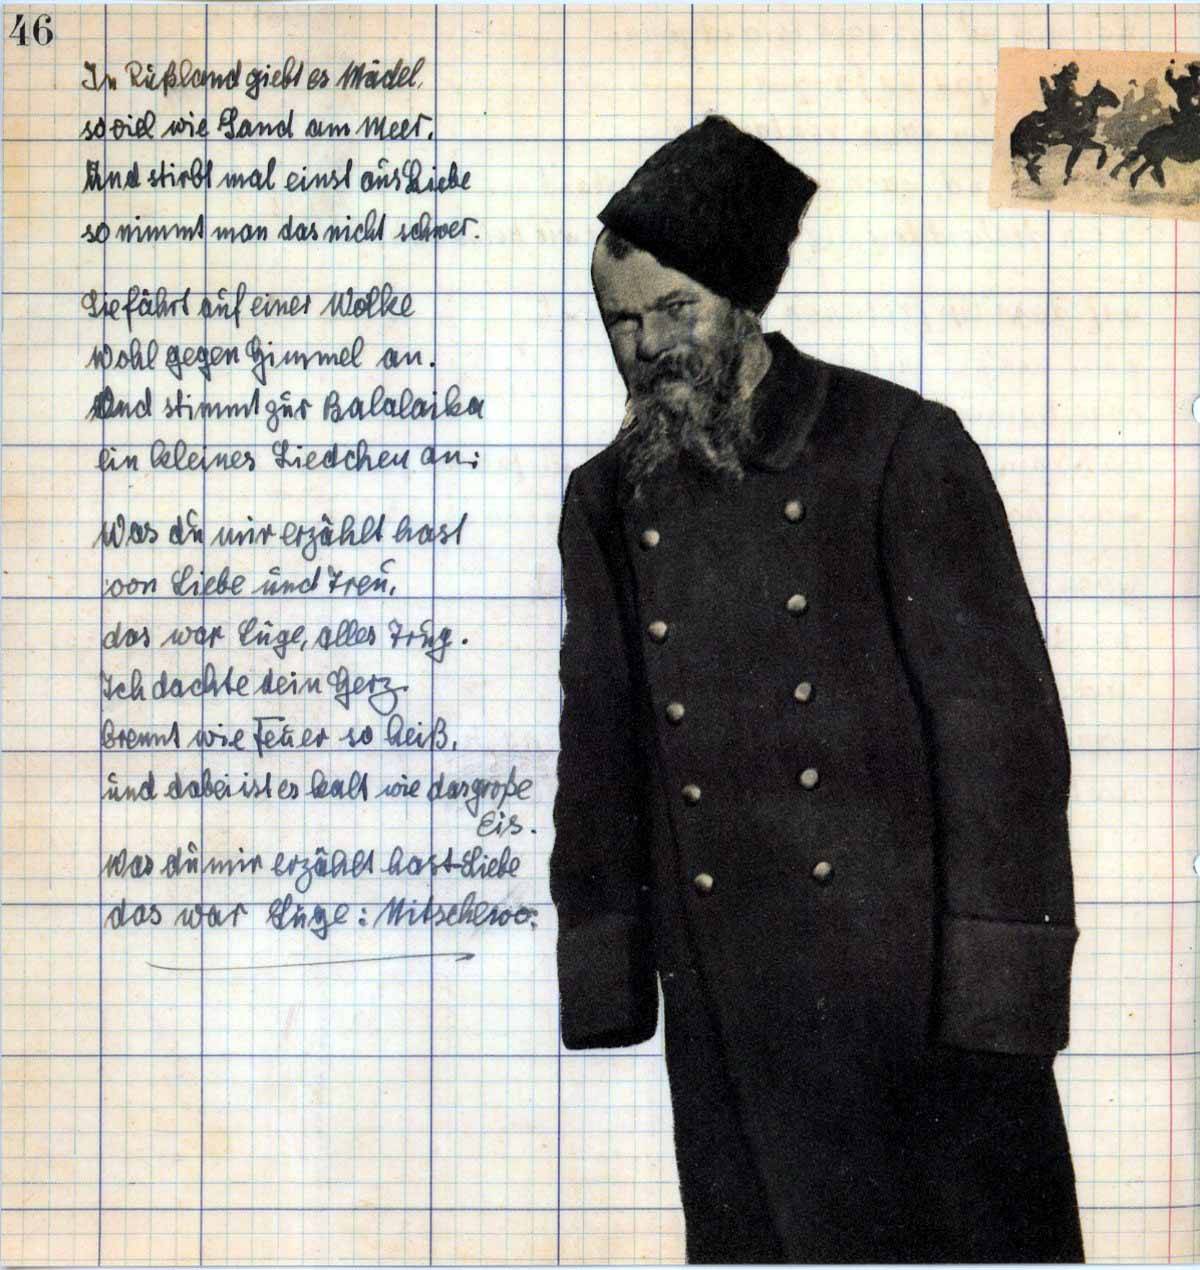 46
In Rußland giebt es Mädel,
so viel wie Sand am Meer.
Und stirbt mal einst aus Liebe
so nimmt man das nicht schwer.
Sie fährt auf einer Wolke
wohl gegen Himmel an.
Und stimmt zur Balalaika
ein kleines Liedchen an:
Was du mir erzählt hast
von Liebe und Treu,
das war Lüge, alles Trug.
Ich dachte dein Herz
brennt wie Feuer so heiß,
und dabei ist es kalt wie das große
Eis.
Was du mir erzählt hast-Liebe
das war Lüge: Nitschewo.